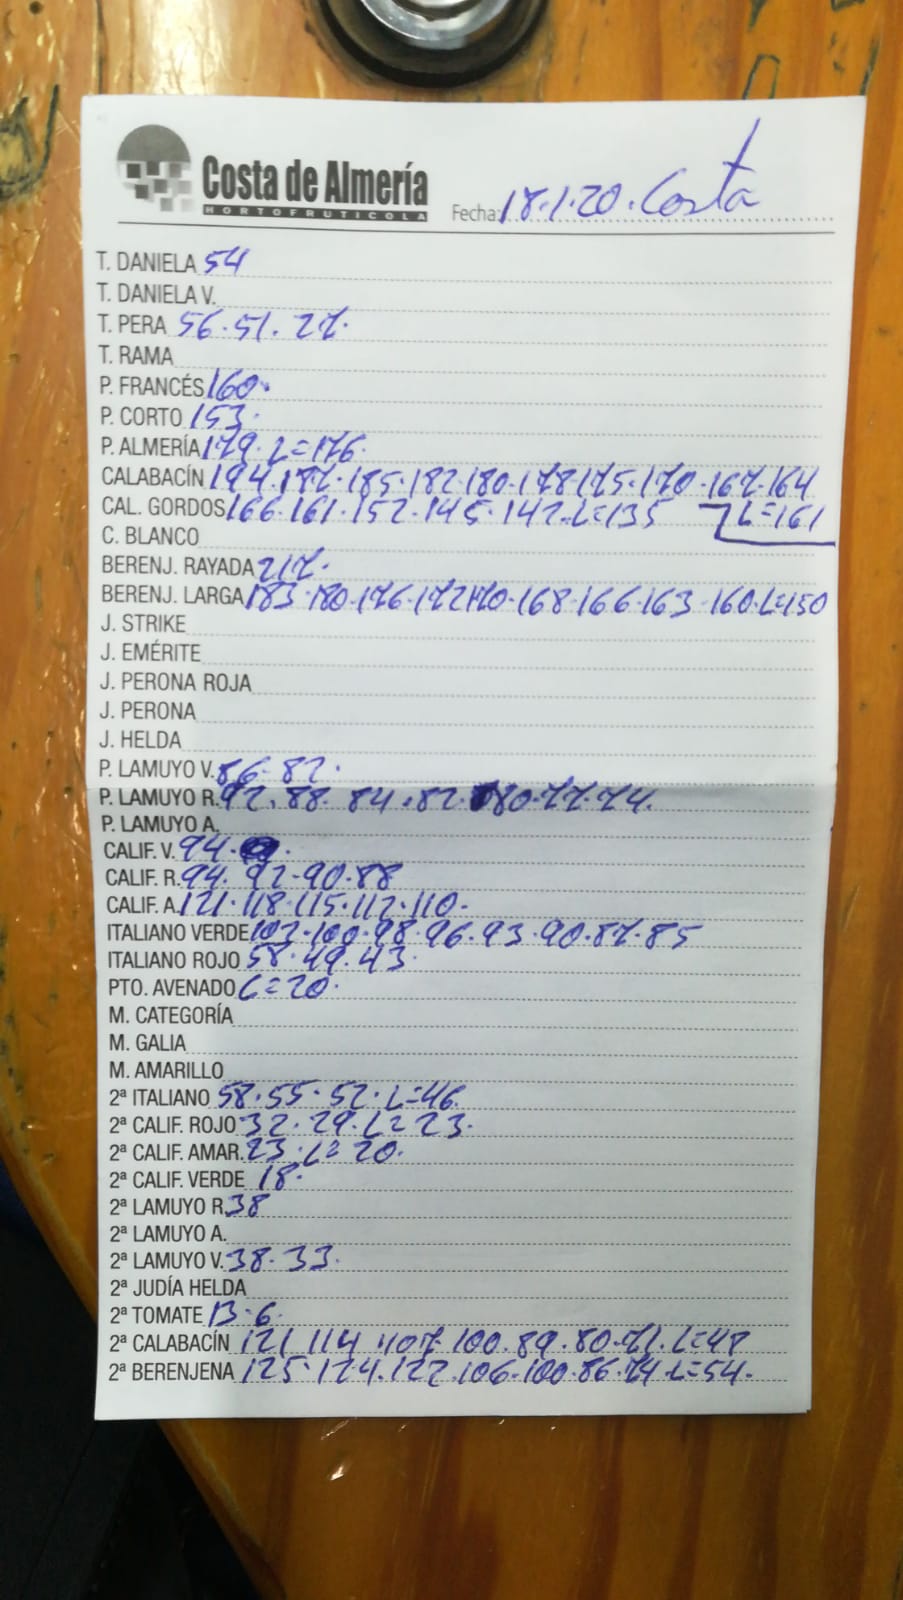 Costa de Almería
HORTOFRUTICOLA
Fecha: 18.1.20. Costa
T. DANIELA 54
T. DANIELA V.
T. PERA 56.51.27.
T. RAMA
P. FRANCÉS 160.
P. CORTO 153.
P. ALMERÍA 179. L=176.
CALABACÍN 194.187.185.182.180.178.175.170.167.164
L=161
CAL. GORDOS 166.161.152.145.142.L=135
C. BLANCO
BERENJ. RAYADA 217.
BERENJ. LARGA 183.180.176.172.170.168.166.163.160.L=150
J. STRIKE
J. EMÉRITE
J. PERONA ROJA
J. PERONA
J. HELDA
P. LAMUYO V. 86.82.
P. LAMUYO R. 92.88.84.82.80.77.74.
P. LAMUYO A.
CALIF. V. 94.
CALIF. R. 94.92.90.88
CALIF. A. 121.118.115.112.110.
ITALIANO VERDE 102.100.98.96.93.90.87.85
ITALIANO ROJO 58.49.43
PTO. AVENADO L=20.
M. CATEGORÍA
M. GALIA
M. AMARILLO
2ª ITALIANO 58.55.52.L=46.
2ª CALIF. ROJO 32.29.L=23.
2ª CALIF. AMAR. 23.L=20.
2ª CALIF. VERDE 18.
2ª LAMUYO R. 38
2ª LAMUYO A.
2ª LAMUYO V. 38.33.
2ª JUDÍA HELDA
2ª TOMATE 13.6.
2ª CALABACÍN 121.114.107.100.89.80.71.L=48
2ª BERENJENA 125.124.122.106.100.86.74.L=54.